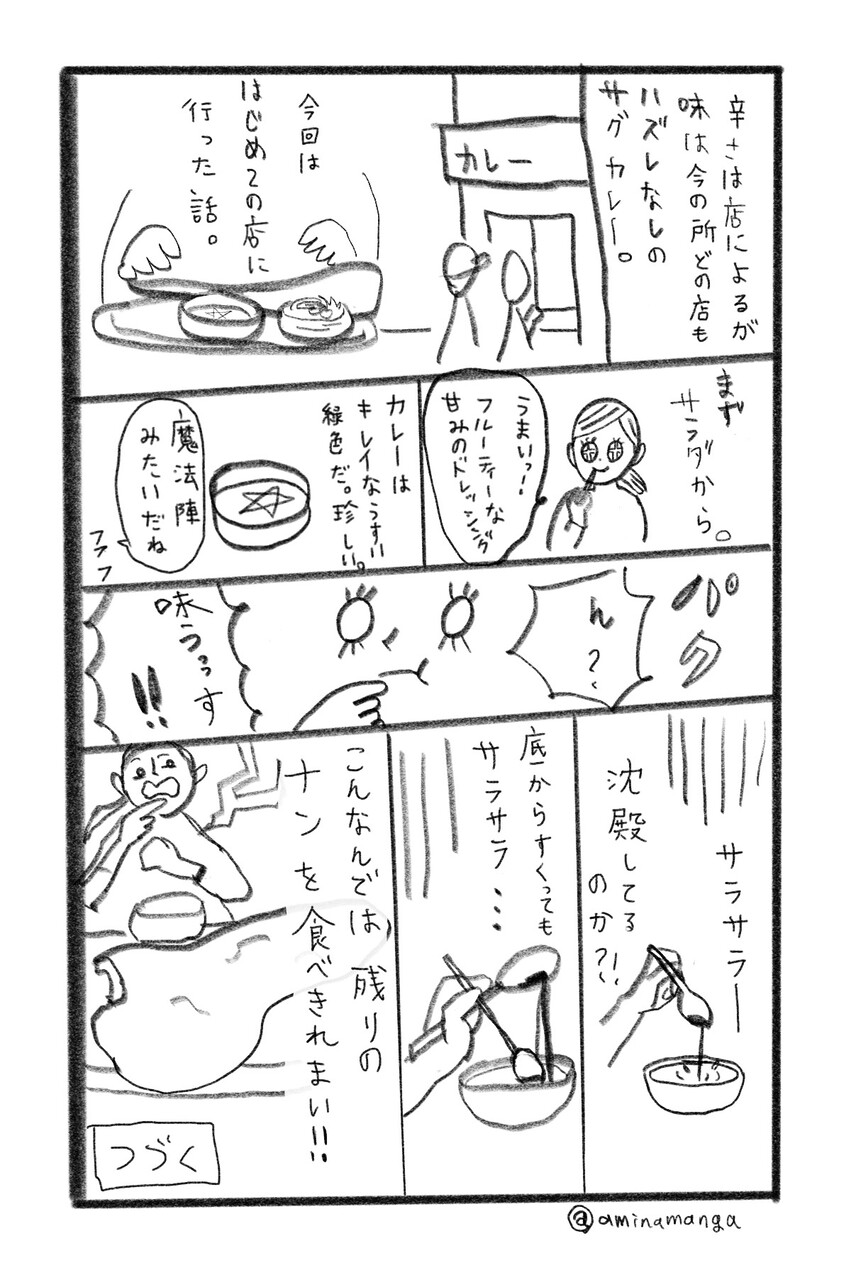 辛さは店によるが
味は今の所どの店も
ハズレなしの
サグカレー。
カレー
今回は
はじめての店に
行った話。
まず
サラダから。
うまいっ!
フルーティーな
甘みのドレッシング
カレーは
キレイなうすい
緑色だ。珍しい。
魔法陣
みたいだね
フフフ
パク
ん?
味うっす
!!
サラサラー
沈殿してる
のか?!
底からすくっても
サラサラ…
こんなんでは残りの
ナンを食べきれまい!!
つづく
@aminamanga